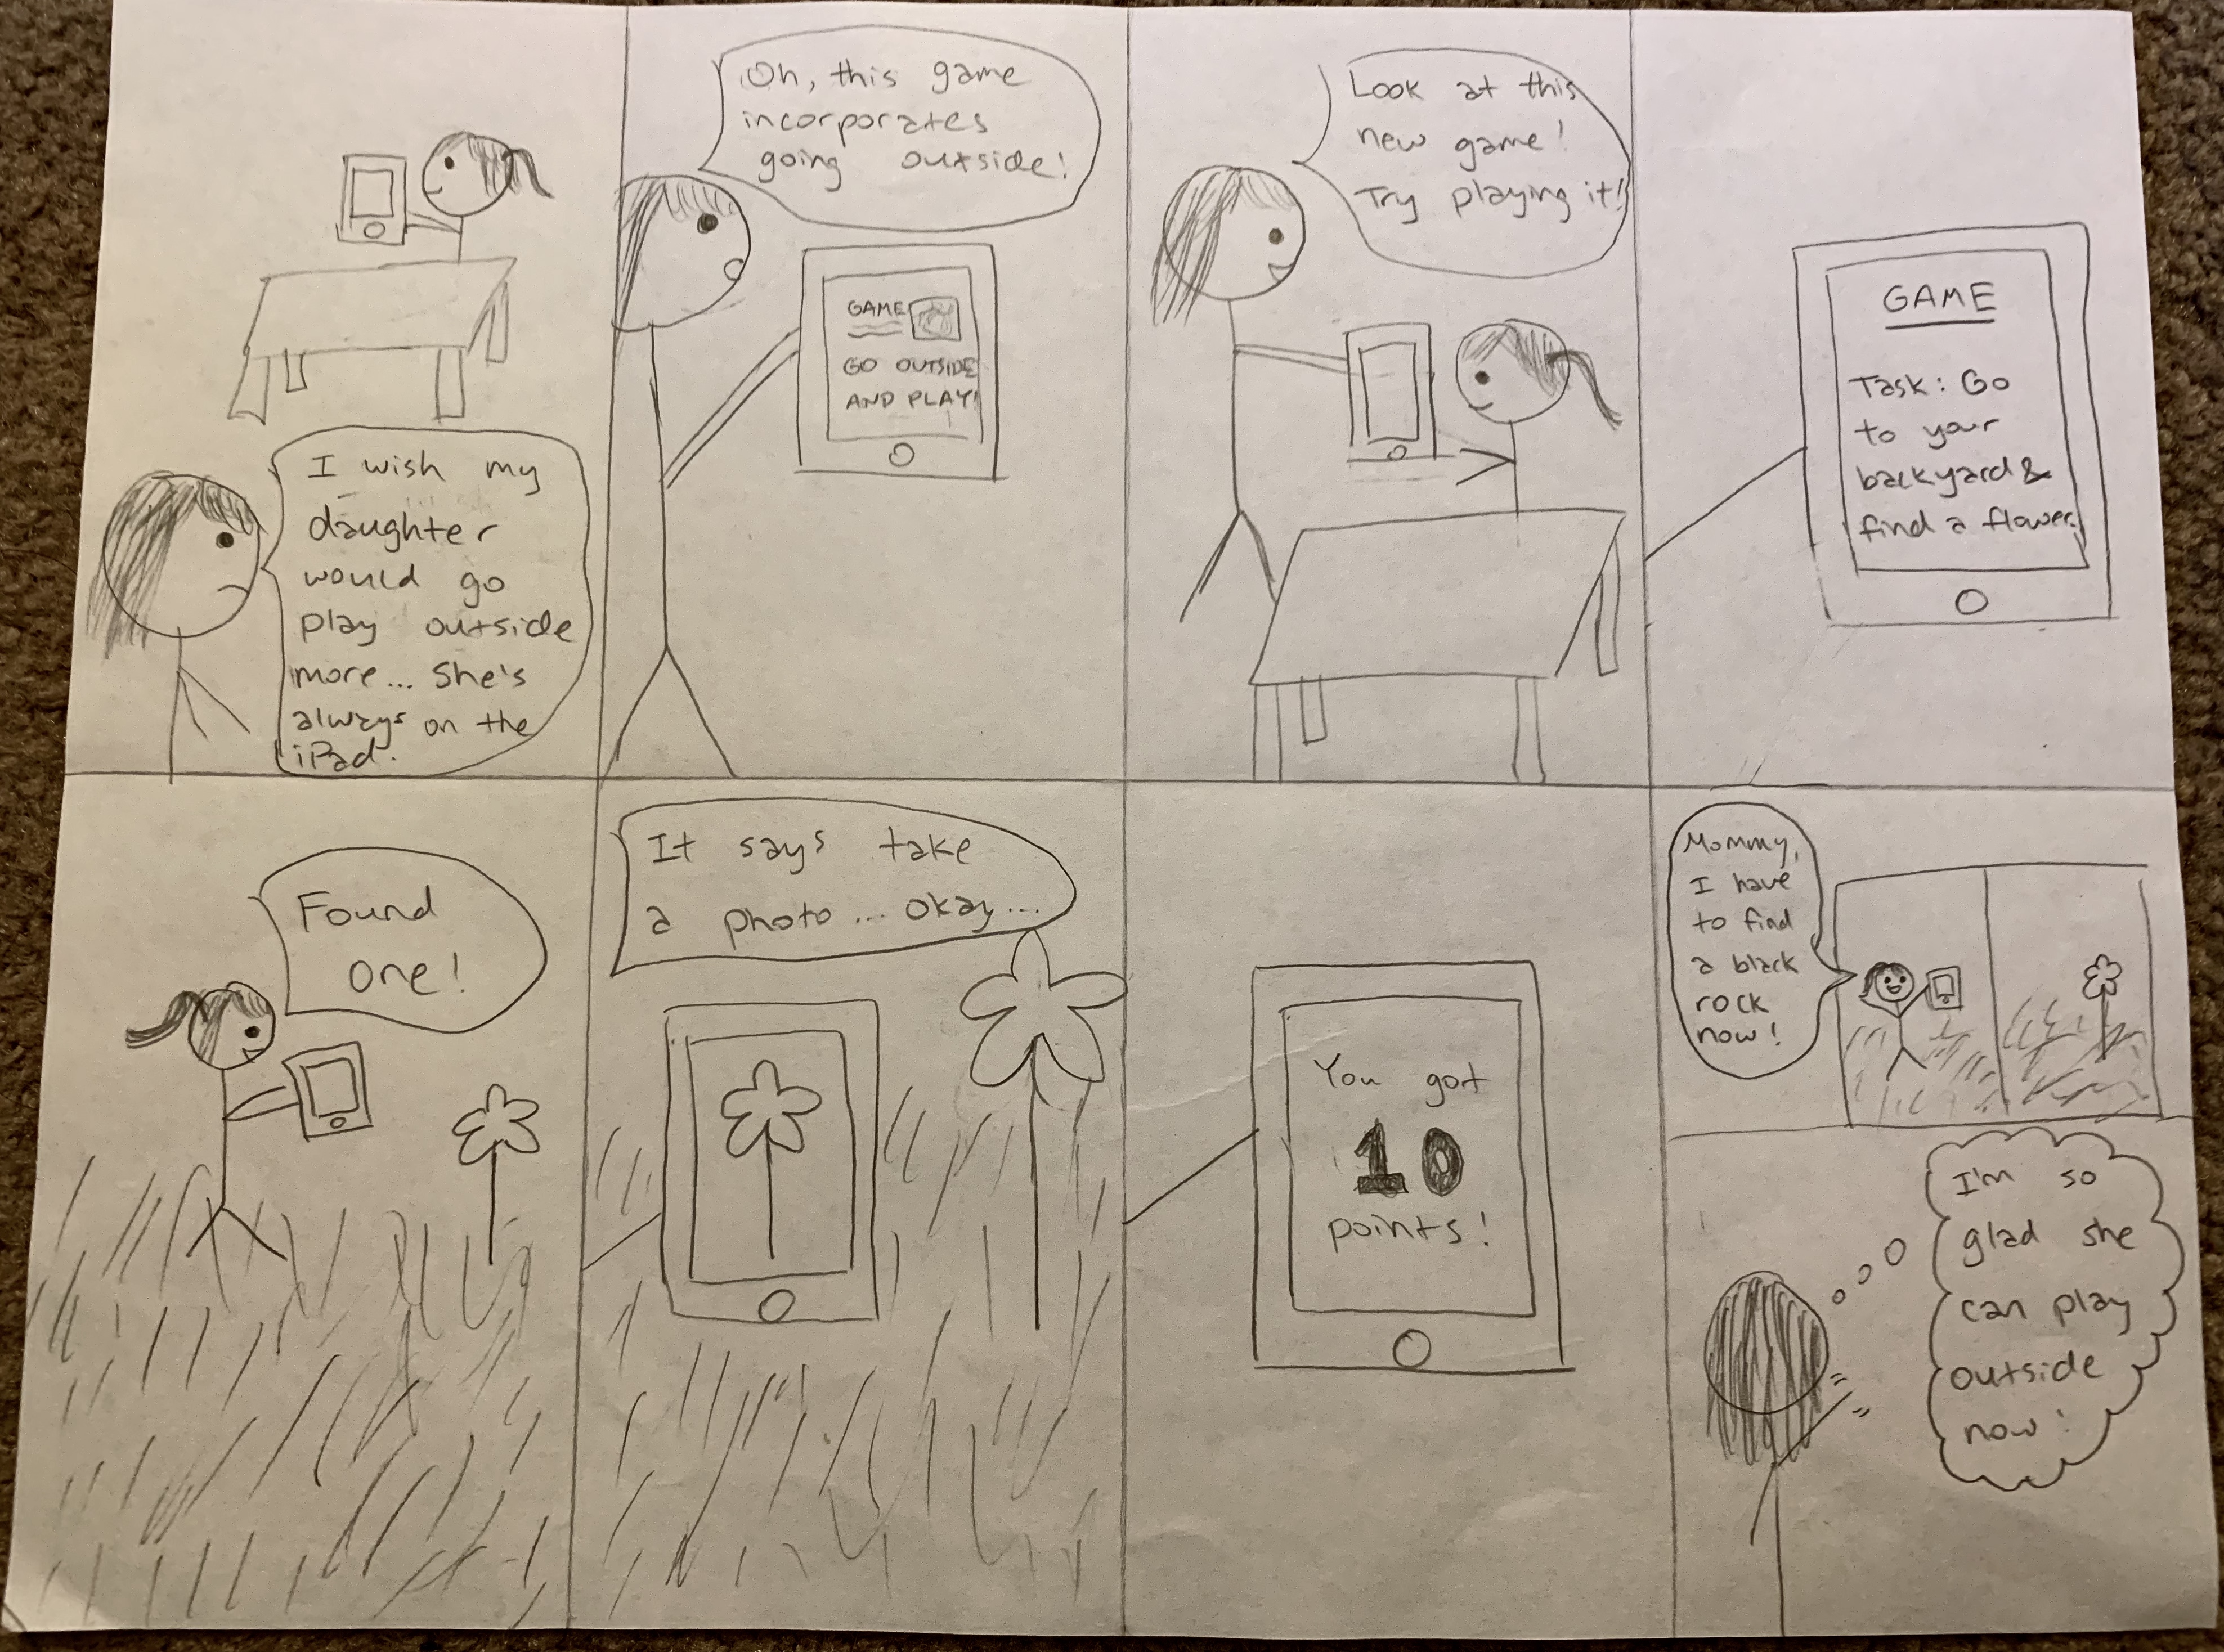 I wish my
daughter
would go
play outside
more... She's
always on the
iPad.
Oh, this game
incorporates
going outside!
GAME
GO OUTSIDE
AND PLAY!
Look at this
new game!
Try playing it!
GAME
Task: Go
to your
backyard &
find a flower.
Found
one!
It says take
a photo... okay...
You got
10
points!
Mommy,
I have
to find
a black
rock
now!
I'm so
glad she
can play
outside
now!